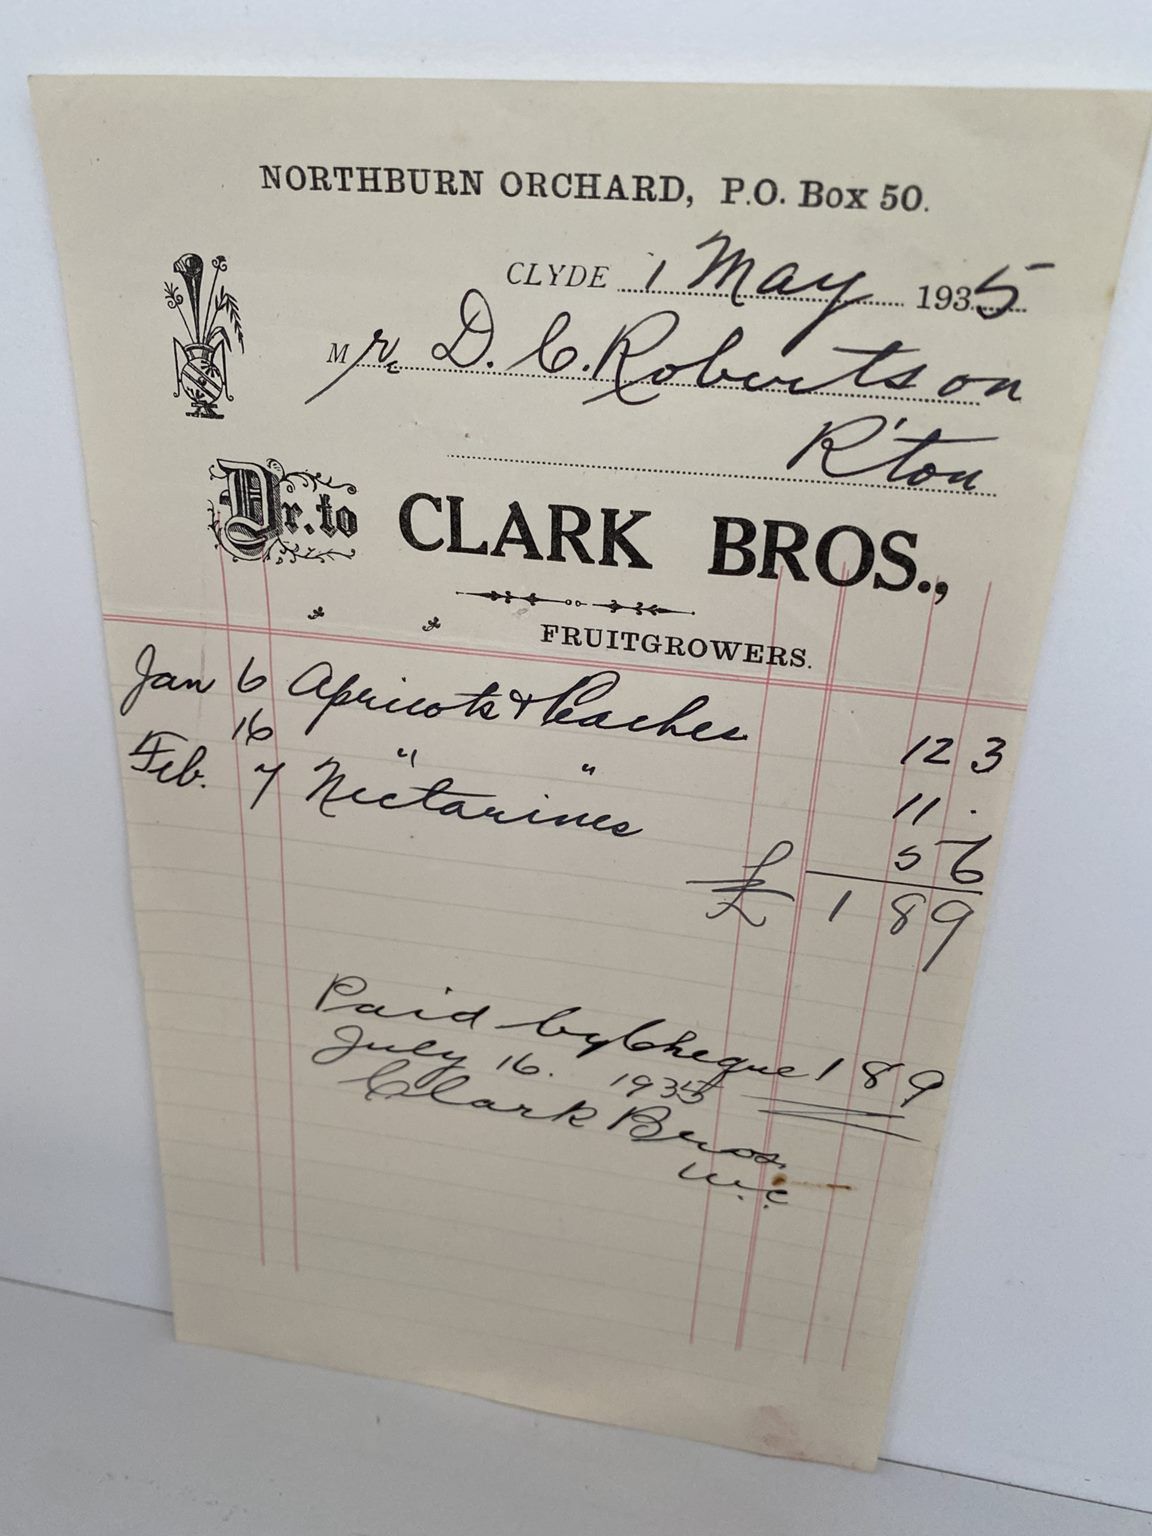 NORTHBURN ORCHARD, P.O. Box 50.
CLYDE 1 May 1935
Mr. D. C. Robertson
R'ton
Dr. to CLARK BROS.,
FRUITGROWERS.
Jan 6 Apricots & Peaches 12 3
16 " " 11 .
Feb. 7 Nectarines 5 6
£ 1 8 9
Paid by Cheque 1 8 9
July 16. 1935
Clark Bros.
W.C.